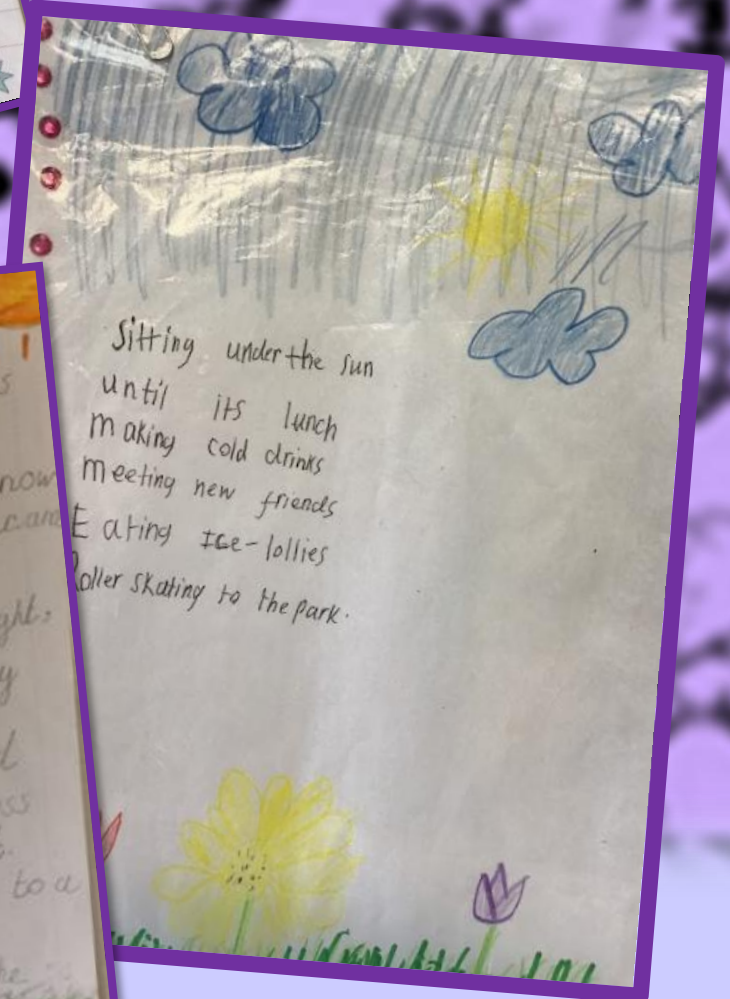 Sitting under the sun
until its lunch
making cold drinks
meeting new friends
Eating Ice-lollies
Roller skating to the park.
s
now
cam
ght,
y
l
ss
to a
he is